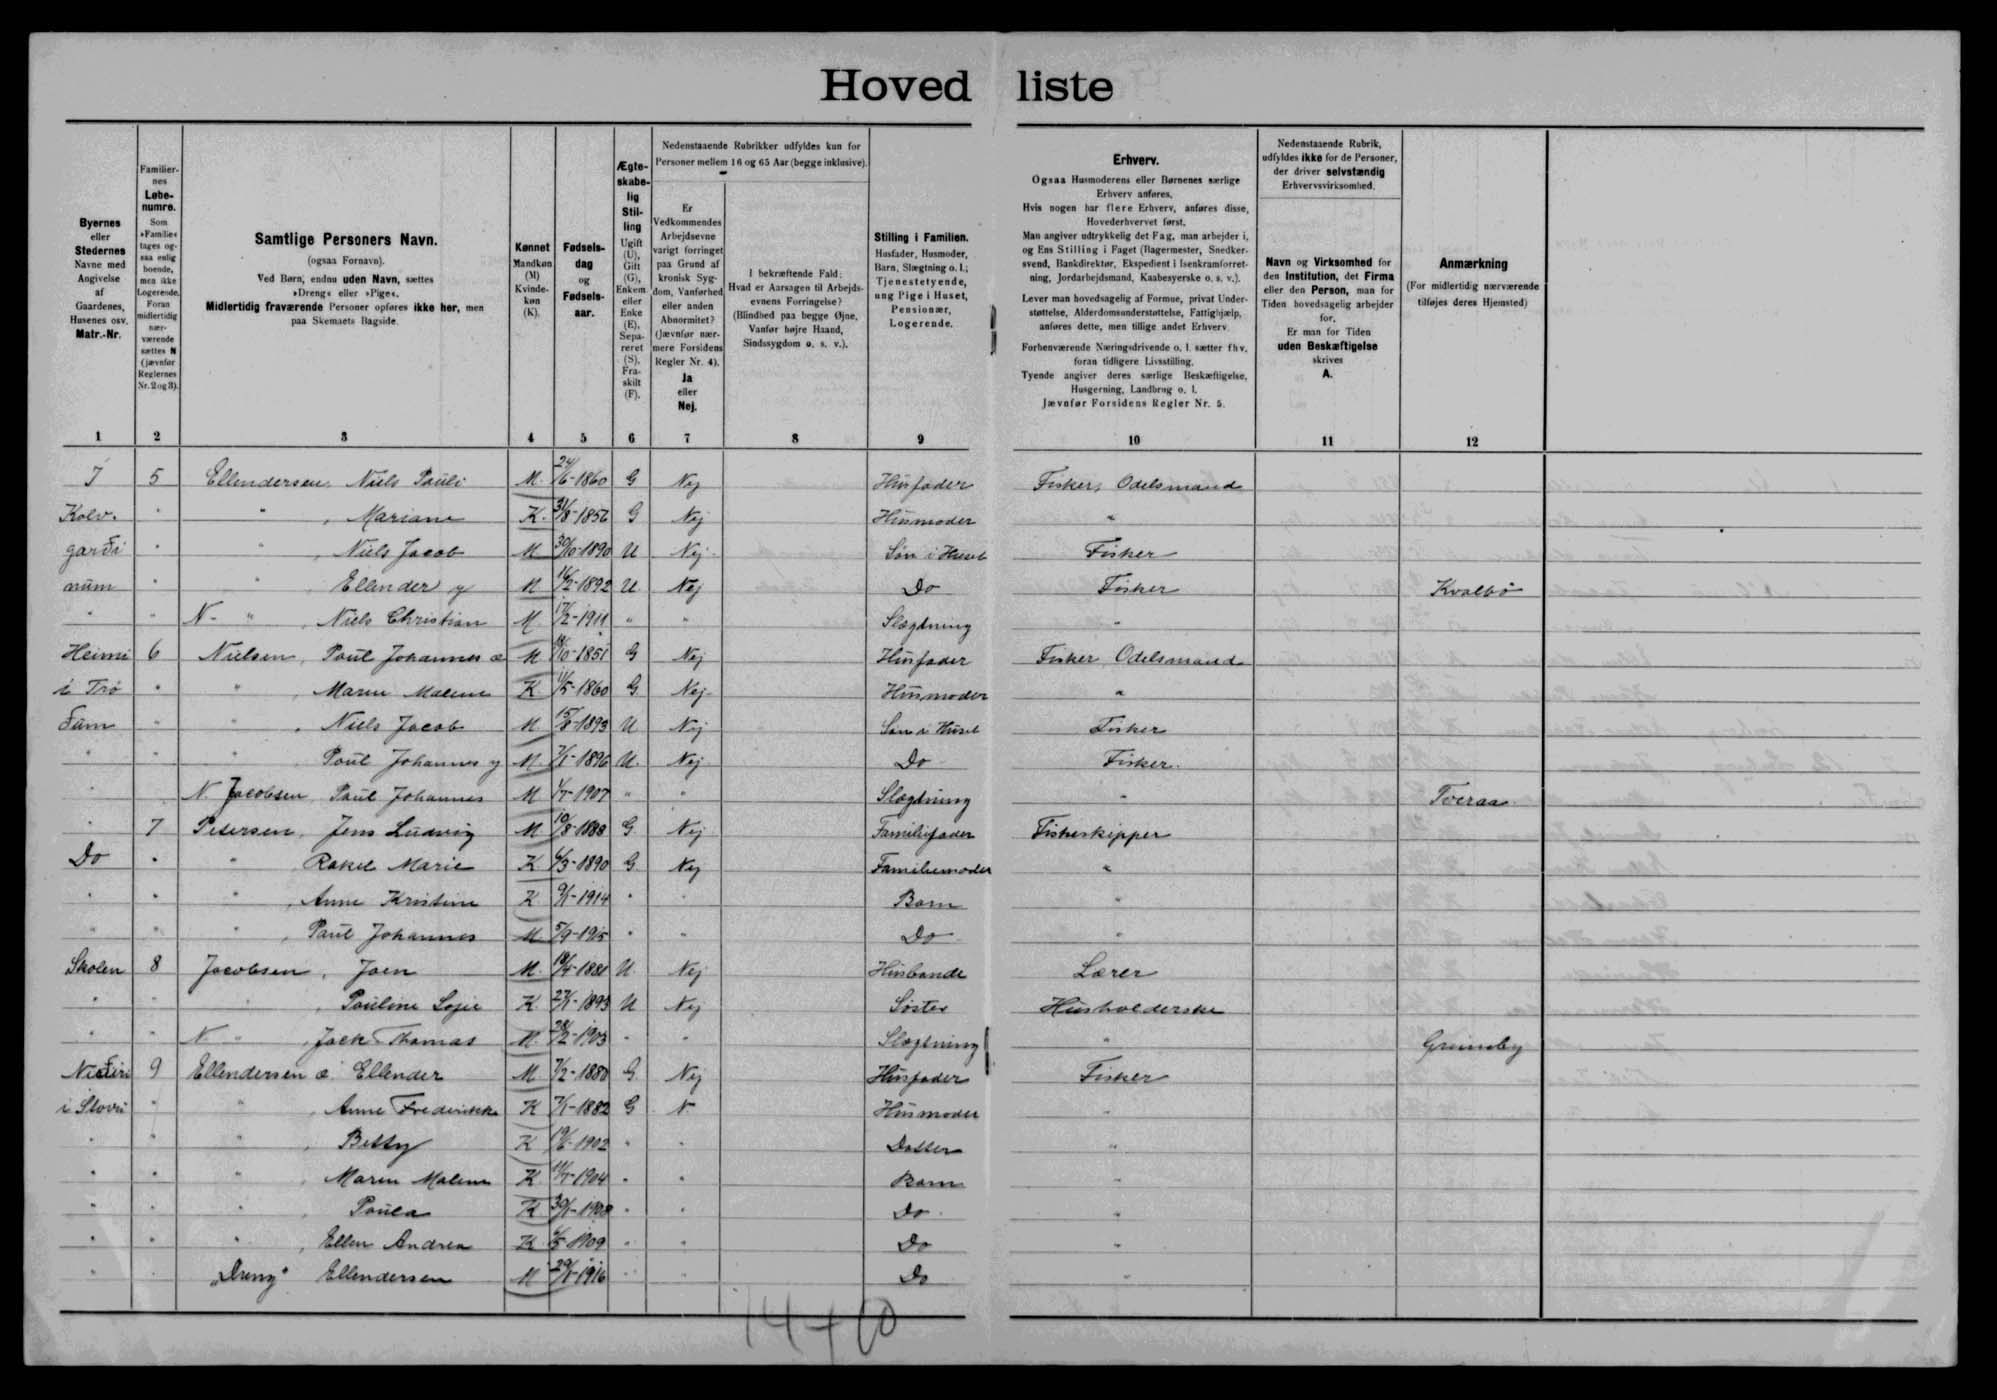 Hoved liste
Byernes eller Stedernes Navne med Angivelse af Gaardenes, Husenes osv. Matr.-Nr.
Familiernes Løbenumre. Som »Familie« tages ogsaa enlig boende, men ikke Logerende. Foran midlertidig nærværende sættes N (jævnfør Reglernes Nr. 2 og 3).
Samtlige Personers Navn. (ogsaa Fornavn). Ved Børn, endnu uden Navn, sættes »Dreng« eller »Pige«. Midlertidig fraværende Personer opføres ikke her, men paa Skemaets Bagside.
Kønnet Mandkøn (M) Kvindekøn (K).
Fødselsdag og Fødselsaar.
Ægteskabelig Stilling Ugift (U), Gift (G), Enkem. eller Enke (E), Separeret (S), Fraskilt (F).
Nedenstaaende Rubrikker udfyldes kun for Personer mellem 16 og 65 Aar (begge inklusive).
Er Vedkommendes Arbejdsevne varigt forringet paa Grund af kronisk Sygdom, Vanførhed eller anden Abnormitet? (Jævnfør nærmere Forsidens Regler Nr. 4). Ja eller Nej.
I bekræftende Fald: Hvad er Aarsagen til Arbejdsevnens Forringelse? (Blindhed paa begge Øjne, Vanfør højre Haand, Sindssygdom o. s. v.).
Stilling i Familien. Husfader, Husmoder, Barn, Slægtning o. l.; Tjenestetyende, ung Pige i Huset, Pensionær, Logerende.
Erhverv.
Ogsaa Husmoderens eller Børnenes særlige Erhverv anføres.
Hvis nogen har flere Erhverv, anføres disse, Hovederhvervet først.
Man angiver udtrykkelig det Fag, man arbejder i, og Ens Stilling i Faget (Bagermester, Snedkersvend, Bankdirektør, Ekspedient i Isenkramforretning, Jordarbejdsmand, Kaabesyerske o. s. v.).
Lever man hovedsagelig af Formue, privat Understøttelse, Alderdomsunderstøttelse, Fattighjælp, anføres dette, men tillige andet Erhverv.
Forhenværende Næringsdrivende o. l. sætter fhv. foran tidligere Livsstilling.
Tyende angiver deres særlige Beskæftigelse, Husgerning, Landbrug o. l.
Jævnfør Forsidens Regler Nr. 5.
Nedenstaaende Rubrik, udfyldes ikke for de Personer, der driver selvstændig Erhvervsvirksomhed.
Navn og Virksomhed for den Institution, det Firma eller den Person, man for Tiden hovedsagelig arbejder for. Er man for Tiden uden Beskæftigelse skrives A.
Anmærkning (For midlertidig nærværende tilføjes deres Hjemsted)
1 2 3 4 5 6 7 8 9 10 11 12
I 5 Ellendersen, Niels Pauli M. 24/6-1860 G Nej Husfader Fisker, Odelsmand
Kolv. " " , Mariane K. G Nej Husmoder "
garði " " , Niels Jacob M 30/10-1890 U Nej Søn i Huset Fisker
num " " Ellender y M 16/2-1892 U Nej Do Fisker Kvalbø
" " N- " , Niels Christian M 17/2-1911 " " Slægtning "
Heimi 6 Nielsen, Poul Johannes æ M G Nej Husfader Fisker Odelsmand
i Trø " " , Maren Malene K 11/5-1860 G Nej Husmoder "
ðum " " , Niels Jacob M 15/8-1893 U Nej Søn i Huset Fisker
" " " Poul Johannes y M 7/1-1896 U. Nej Do Fisker.
" N. Jacobsen, Paul Johannes M 1907 " " Slægtning " Tveraa
" 7 Petersen, Jens Ludvig M 10/8-1888 G Nej Familiefader Fiskeskipper
Do " " Rakel Marie K 6/3-1890 G Nej Familiemoder "
" " " , Anne Kristine K 9/1-1914 " " Barn "
" " " , Paul Johannes M 5/9-1915 " " Do "
Skolen 8 Jacobsen, Joen M. 18/4-1881 U Nej Husbonde Lærer
" " " , Pauline Sofie K. 27/1-1893 U Nej Søster Husholderske
" " N " , Jack Thomas M. 28/2-1903 " " Slægtning " Grimsby
Niðiri 9 Ellendersen æ Ellender M 7/2-1880 G. Nej Husfader Fisker
i Stovu " " , Anne Frederikke K 7/1-1882 G N Husmoder "
" " " , Betty K 1902 " Datter "
" " " , Maren Malene K 1904 " " Barn "
" " " , Paula K 1908 " " Do "
" " " , Ellen Andrea K 1909 " " Do "
" " "Dreng" Ellendersen M 1916 " " Do "
14 + 10